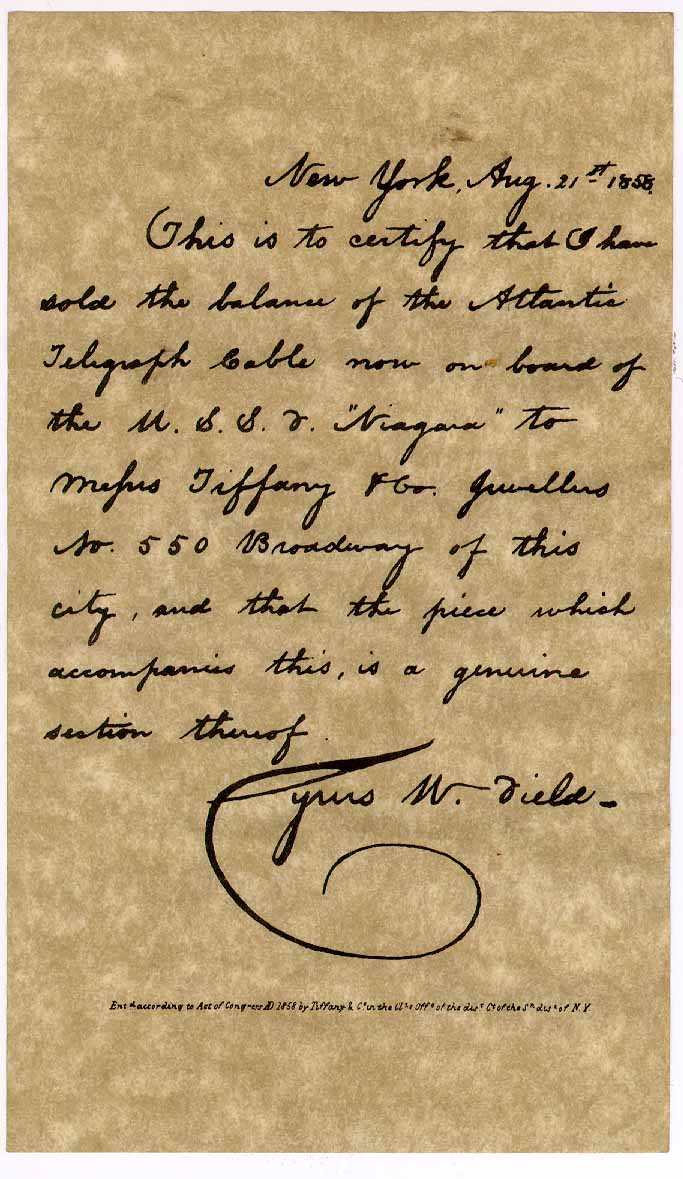 New York, Aug. 21st 1858.
This is to certify that I have
sold the balance of the Atlantic
Telegraph Cable now on board of
the U. S. S. F. "Niagara" to
Messrs Tiffany & Co. Jewellers
No. 550 Broadway of this
city, and that the piece which
accompanies this, is a genuine
section thereof.
Cyrus W. Field -
Entd. according to Act of Congress AD 1858 by Tiffany & Co in the Clks Offe of the dist Ct of the Sn dist of N.Y.